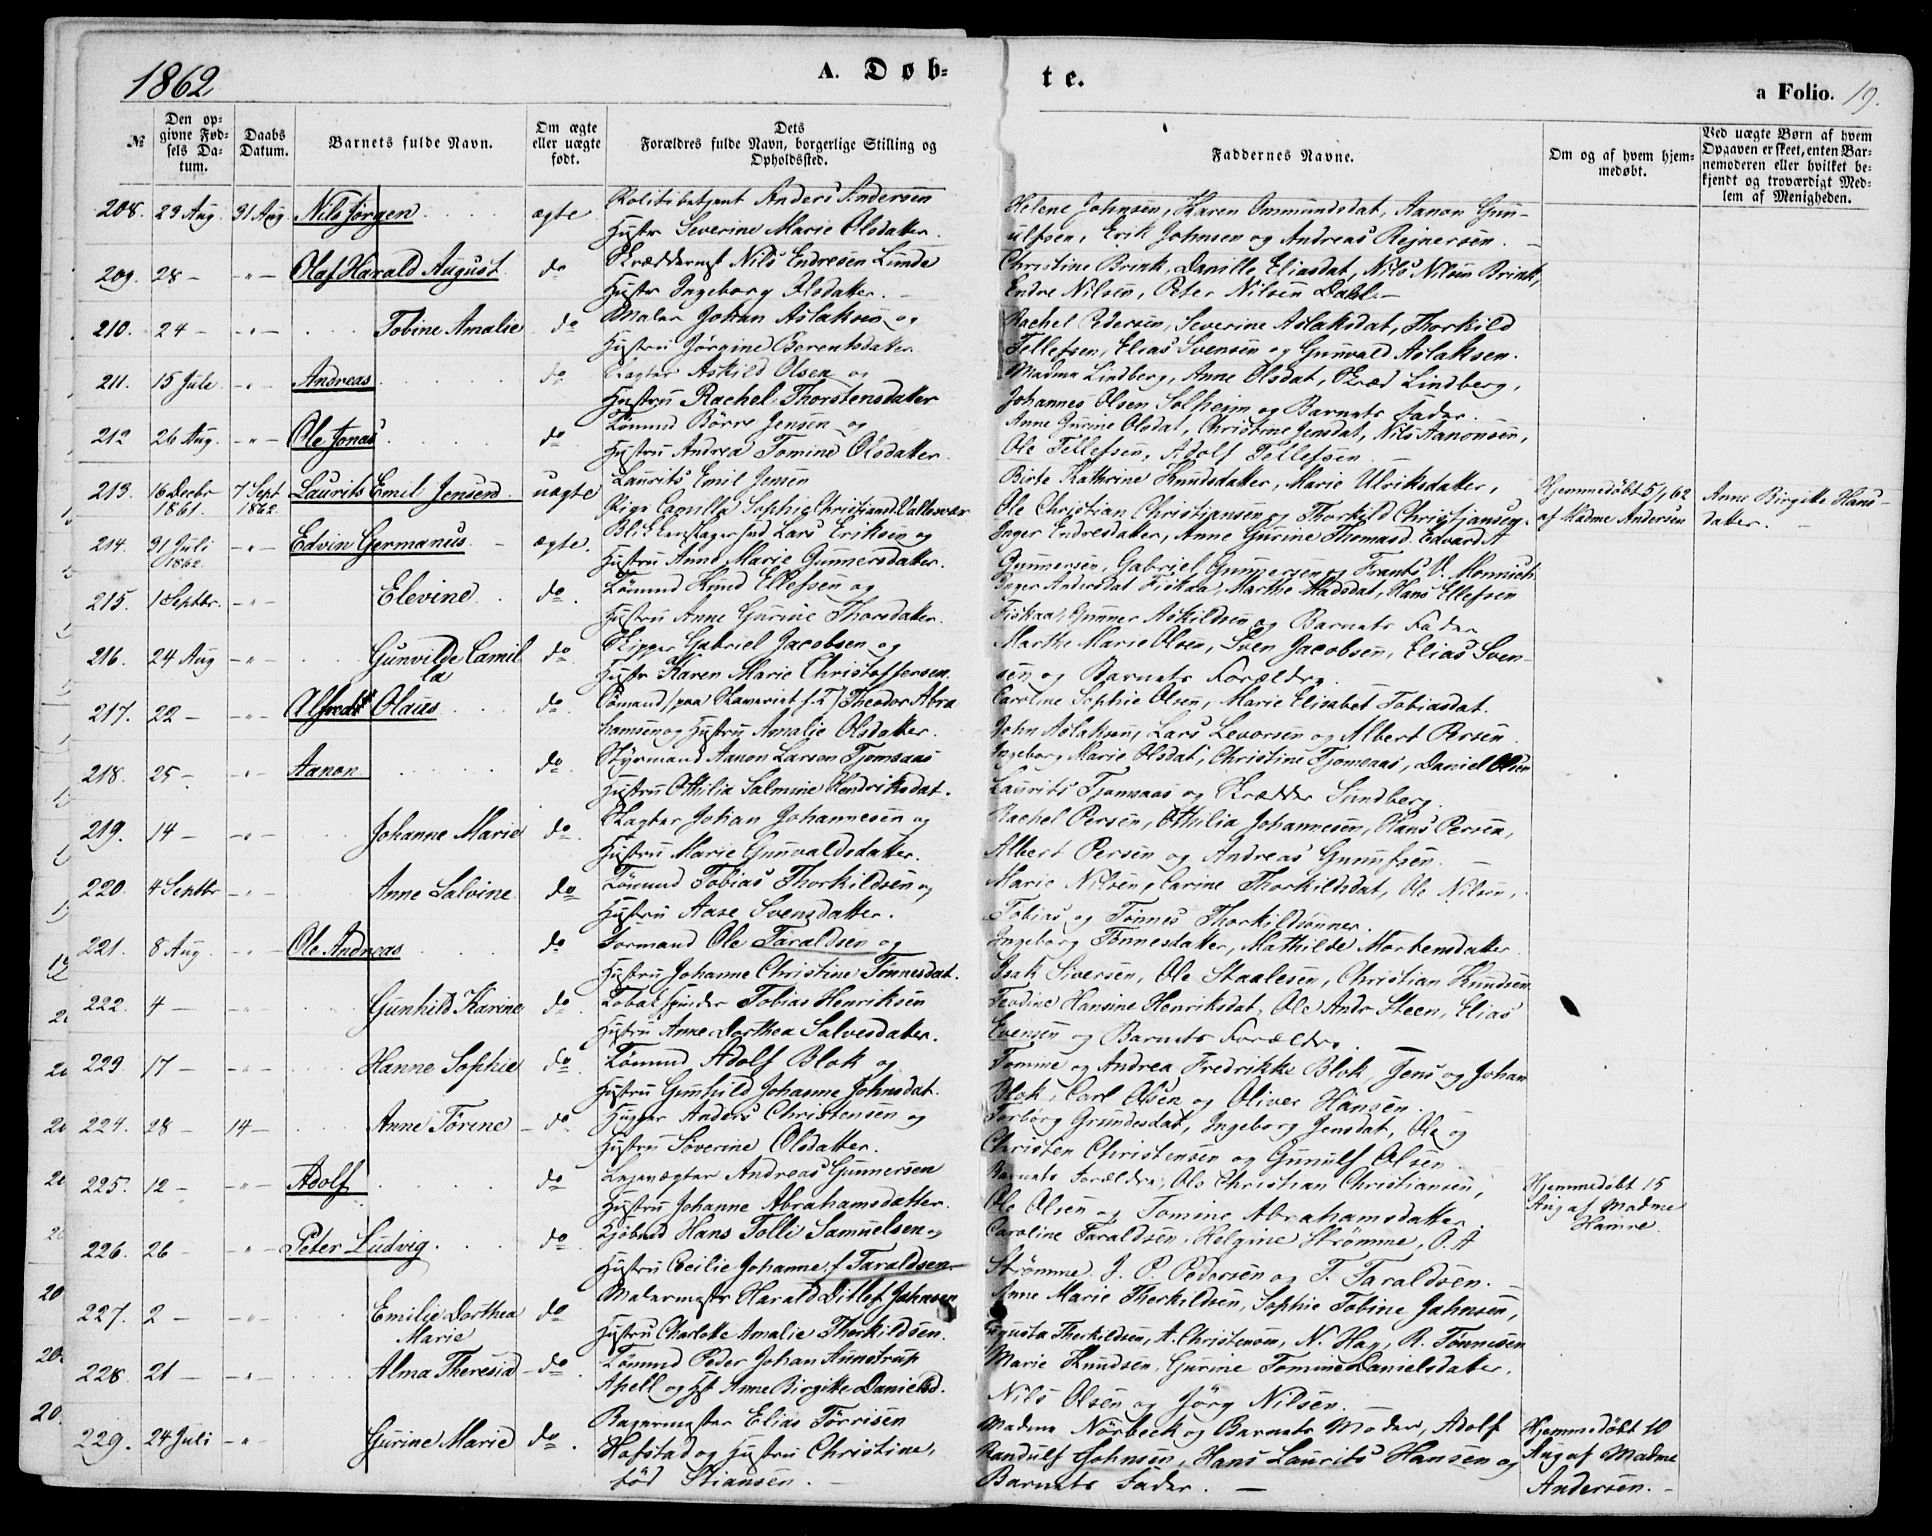 1862
A. Døb-
te.
a Folio. 19.
№
Den op-
givne Fød-
sels Da-
tum.
Daabs
Datum.
Barnets fulde Navn.
Om ægte
eller uægte
født.
Dets
Forældres fulde Navn, borgerlige Stilling og
Opholdssted.
Faddernes Navne.
Om og af hvem hjem-
medøbt.
Ved uægte Børn af hvem
Opgaven er skeet, enten Bar-
nemoderen eller hvilket be-
kjendt og troværdigt Med-
lem af Menigheden.
208. 29 Aug. 31 Aug Nils Jørgen ægte Politibetjent Anders Andersen
Hustr Severine Marie Olsdatter.
Helene Johnsen, Karen Ommundsdat, Aanon Gun-
ulfsen, Erik Johnsen og Andreas Rejnersen.
209. 28 - -"- Olaf Harald August do Skræddermst Nils Endresen Lunde
Hustr Ingeborg Olsdatter.
Christine Brink, Danille Eliasdat, Nils Nilsen Brink,
Endre Nilsen, Peter Nilsen Dahl.
210. 24 - -"- Tobine Amalie do Maler Johan Aslaksen og
Hustru Jørgine Berentsdatter
Rachel Pedersen, Severine Aslaksdat, Thorkild
Tellefsen, Elias Svensen og Gunvald Aslaksen.
211. 15 Jule -"- Andreas do Slagter Askild Olsen og
Hustru Rachel Thorstensdatter
Madme Lindberg, Anne Olsdat, Skræd Lindberg,
Johannes Olsen Solheim og Barnets Fader.
212 26 Aug. -"- Ole Jonas do Tømmd Børre Jensen og
Hustru Andrea Tomine Olsdatter.
Anne Gurine Olsdat, Christine Jensdat, Nils Aanonsen,
Ole Tellefsen, Adolf Tellefsen.
213. 16 Decbr 7 Sept Laurits Emil Jensen uægte Laurits Emil Jensen
1861. 1862. Pige Camilla Sophie Christiansd. Vallesvær
Birte Kathrine Knudsdatter, Marie Ulriksdatter,
Ole Christian Christiansen og Thorkild Christjansen.
Hjemmedøbt 5/1 62
af Madme Andersen
Anne Birgitte Hans-
datter.
214. 31 Juli -"- Edvin Germanus ægte. Blikkenslagersvd Lars Eriksen og
1862. Hustru Anne Marie Gunnersdatter.
Inger Endresdatter, Anne Gurine Thomasd. Edvard A
Gunnersen, Gabriel Gunnersen og Frants V. Monnich
215. 1 Septbr. -"- Elevine do. Tømmd Knud Ellefsen og
Hustru Anne Gurine Thorsdatter.
Inger Andersdat Fiskaa, Marthe Madsdat, Hans Ellefsen
Fiskaa, Gunner Askildsen og Barnets Fader
216. 24 Aug -"- Gunvilde Camil do. Skipper Gabriel Jacobsen og
la Hustr Karen Marie Christoffersen.
Marthe Marie Olsen, Sven Jacobsen, Elias Sven-
sen og Barnets Forældre.
217. 22 - -"- Alfred Olaus do. Sømand Theodor Abra
hamsen og Hustru Amalie Olsdatter.
Caroline Sophie Olsen, Marie Elisabet Tobiasdat.
John Aslaksen, Lars Levorsen og Albert Persen
218. 25 - -"- Aanon do. Styrmand Aanon Larsen Tjomsaas
Hustru Othilia Salmine Hendriksdat.
Ingeborg Marie Olsdat, Christine Tjomsaas, Daniel Olsen
Laurits Tjomsaas og Skrædder Sundberg.
219. 14 - -"- Johanne Marie do. Slagter Johan Johannesen og
Hustru Marie Gunvaldsdatter.
Rachel Persen, Othilia Johannesen, Hans Persen,
Albert Persen og Andreas Gunulfsen.
220. 4 Septbr -"- Anne Salvine do Tømmd Tobias Thorkildsen og
Hustru Aase Svensdatter.
Marie Nilsen, Carine Thorkildsdat, Ole Nilsen,
Tobias og Tønnes Thorkildsønner.
221. 8 Aug. -"- Ole Andreas do Formand Ole Taraldsen og
Hustru Johanne Christine Tønnesdat.
Ingeborg Tønnesdatter, Mathilde Mortensdatter
Isak Siversen, Ole Staalesen, Christian Knudsen
222. 4 - -"- Gunhild Karine do. Tobakspinder Tobias Henriksen
Hustru Anne Dorthea Salvesdatter.
Teodine Hansine Henriksdat, Ole Andr Steen, Elias
Evensen og Barnets Forældre.
223. 17 - -"- Hanne Sophie do. Tømmd Adolf Blok og
Hustru Gunhild Johanne Johnsdat.
Tomine og Andrea Fredrikke Blok, Jens og Johan
Blok, Carl Olsen og Oliver Hansen.
224. 28 - 14 - Anne Tørine do. Anders Christensen og
Hustru Søverine Olsdatter.
Torborg Grundesdat, Ingeborg Jensdat, Ole og
Christen Christensen og Gunulf Olsen.
225. 12 - -"- Adolf do. Andreas Gunnersen
Hustru Johanne Abrahamsdatter.
Barnets Forældre, Ole Christian Christiansen,
Ole Olsen og Tomine Abrahamsdatter.
Hjemmedøbt 15
Aug af Madme
Hamre.
226. 26 - -"- Peter Ludvig. do. Kjøbmd Hans Tolli Samuelsen og
Hustru Cecilie Johanne f. Taraldsen
Caroline Taraldsen, Helgine Strømme, O. A
Strømme, J. P. Pedersen og T. Taraldsen.
227. 2 - -"- Emilie Dorthea do Malermstr Harald Ditlef Johnsen
Marie Hustru Charlotte Amalie Therkildsen.
Anne Marie Therkildsen, Sophie Tobine Johnsen,
Augusta Therkildsen, A. Christensen, N. Hay, R. Tønnesen
228. 21 - -"- Alma Theresia do. Tømmd Peder Johan Annstrup
Apell og Hst Anne Birgitte Danielsd.
Marie Knudsen, Gurine Tomine Danielsdatter,
Nils Olsen og Jörg Nilsen.
229. 24 Juli -"- Gurine Marie do. Bagermester Elias Tørrisen
Hafstad og Hustru Christine,
fød Stiansen.
Madme Nörbeck og Barnets Moder, Adolf
Randulf Johnsen, Hans Laurits Hansen og
Barnets Fader.
Hjemmedøbt 10
Aug af Madme
Andersen.